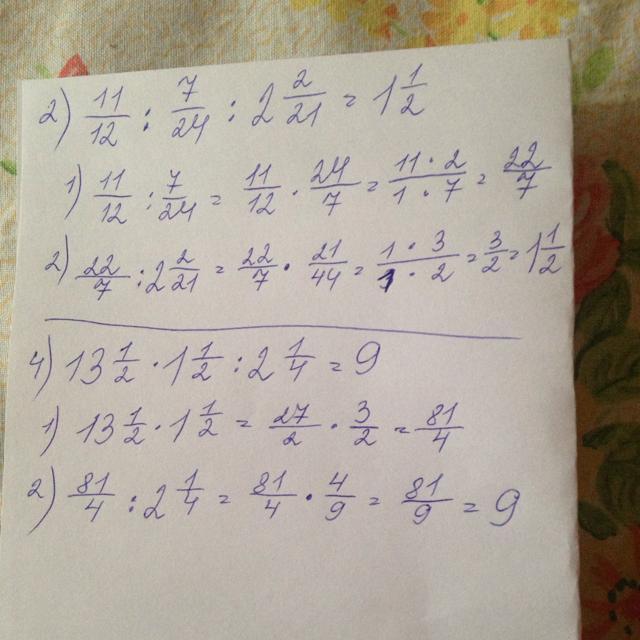 2) 11/12 : 7/24 : 2 2/21 = 1 1/2
1) 11/12 : 7/24 = 11/12 · 24/7 = 11 · 2/1 · 7 = 22/7
2) 22/7 : 2 2/21 = 22/7 · 21/44 = 1 · 3/1 · 2 = 3/2 = 1 1/2
4) 13 1/2 · 1 1/2 : 2 1/4 = 9
1) 13 1/2 · 1 1/2 = 27/2 · 3/2 = 81/4
2) 81/4 : 2 1/4 = 81/4 · 4/9 = 81/9 = 9